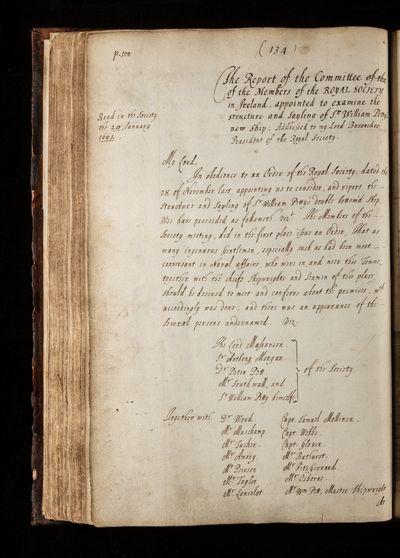 p. 100
( 134 )
The Report of the Committee of the
of the Members of the ROYAL SOCIETY
in Ireland, appointed to examine the
structure and sayling of Sr William Pettys
new Ship: Addressed to my Lord Brouncker
President of the Royal Society.
Read in the Society
the 28 January
1662.
My Lord,
In obedience to an Order of the Royal Society, dated the
28 of November last, appointing us to consider, and report the
Structure and Sayling of Sr William Pettys double bottom'd Ship,
Wee have proceeded as followeth vizt The Members of the
Society meeting, did in the first place issue an Order, That as
many ingenious Gentlemen, especially such as had been most
conversant in Naval affairs, who were in and near this Towne,
together with the cheife Shipwrights and Seamen of this place
should be desired to meet and conferre about the premises, wch
accordingly was done; and there was an appearance of the
severall persons undernamed Viz
The Lord Massereen
Sr Anthony Morgan
Dr Peter Pett
Mr Southwall, and
Sr William Petty himselfe
of the Society.
Together with Dr Wood. Capt. Samuel Mollineux.
Mr Muschamp Capt. Webbe.
Mr Tucker. Capt. Glover.
Mr Amory Mr Bathurst.
Mr Peirson Mr FitzGerrard.
Mr Taylor Mr Osborne.
Mr Lancelot Mr Wm Pett, Master Shipwright